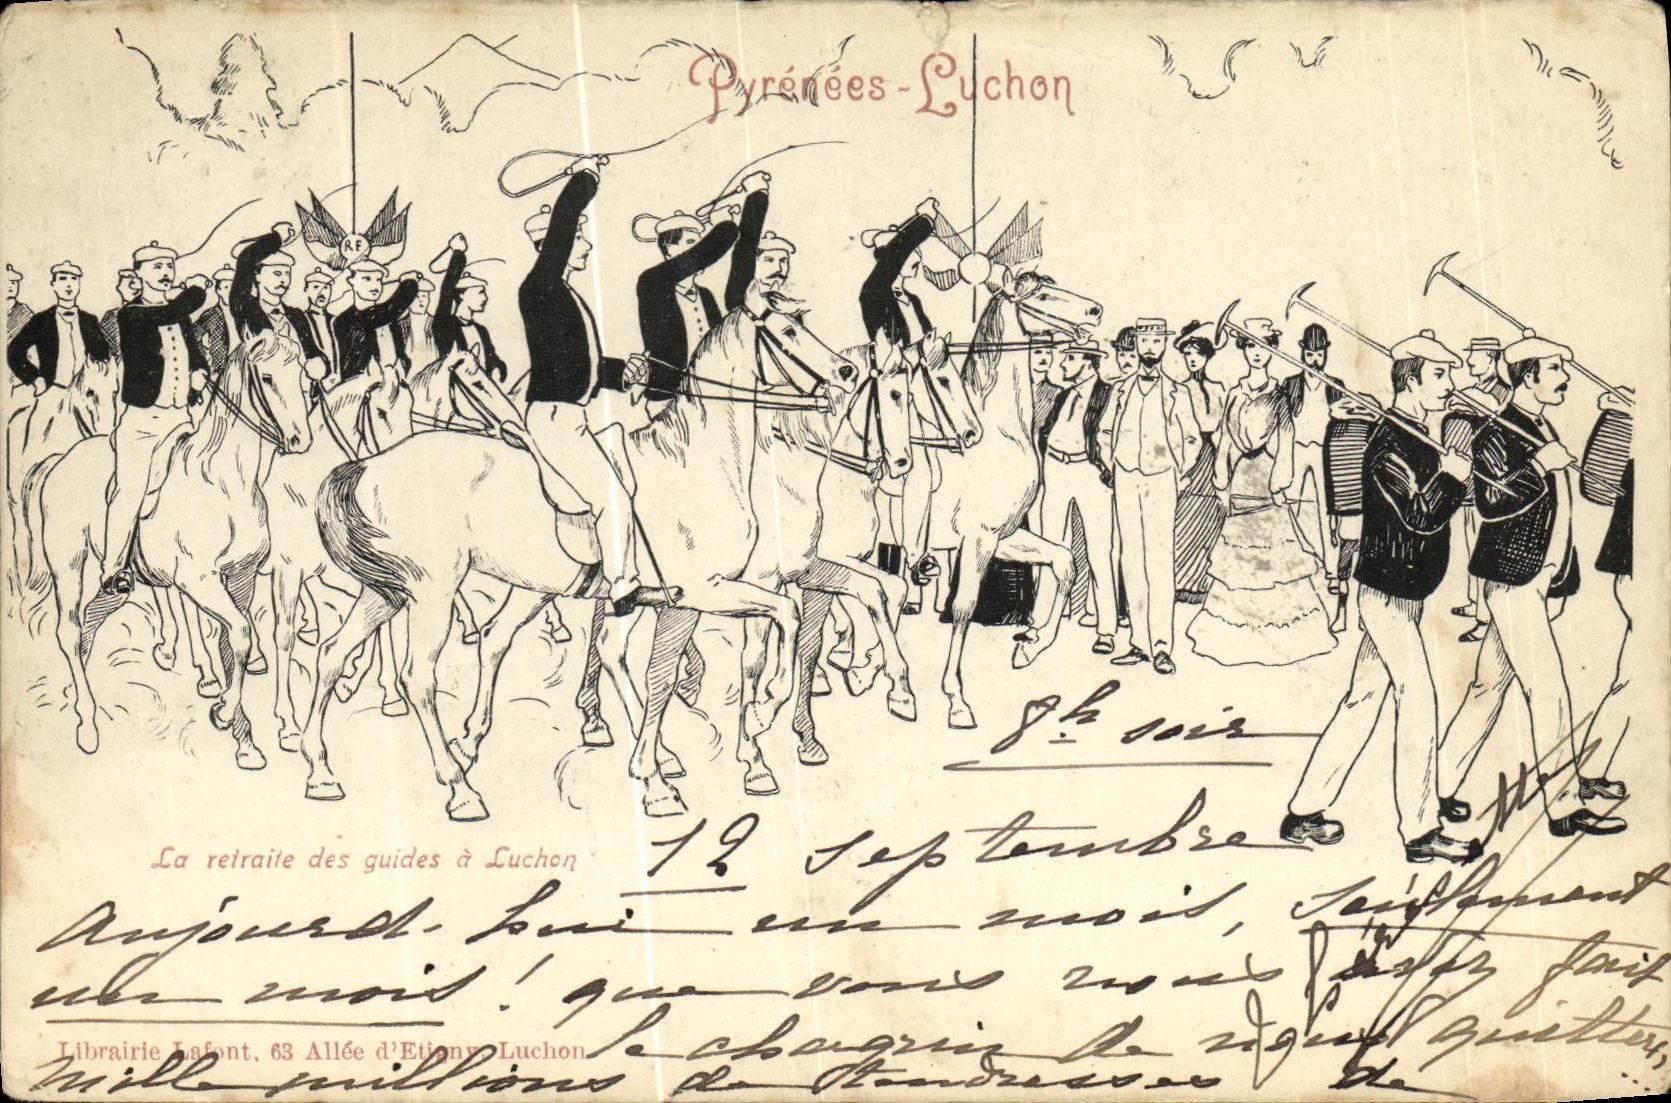 Pyrénées - Luchon
RF
8h soir
La retraite des guides à Luchon
12 septembre
Aujourd-hui un mois, seulement
un mois ! que vous nous avez fait
Librairie Lafont, 63 Allée d'Etigny, Luchon
le chagrin de nous quitter,
Mille millions de tendresses de ...